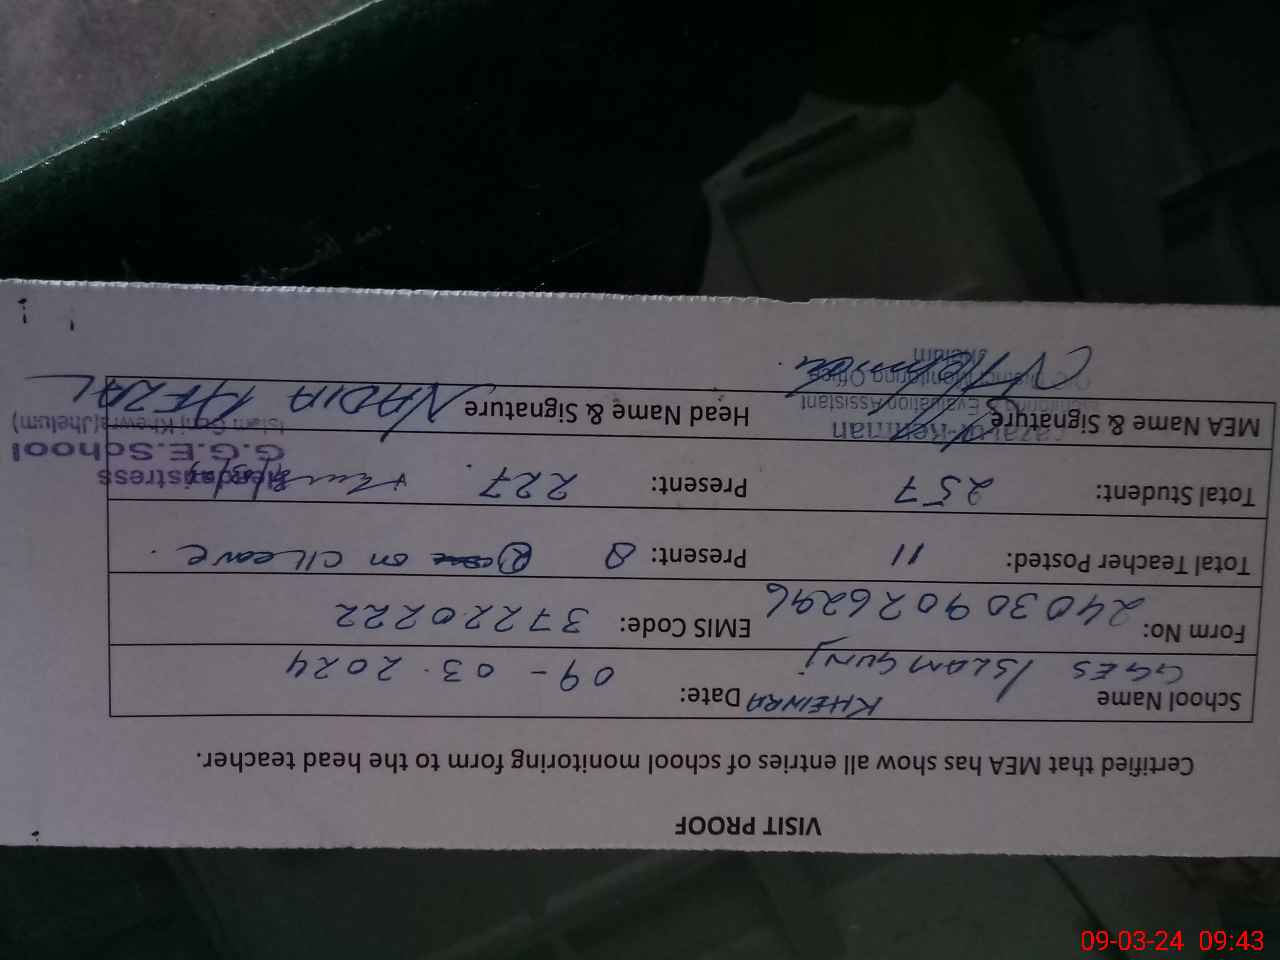 VISIT PROOF
Certified that MEA has show all entries of school monitoring form to the head teacher.
School Name GGES ISLAM GUNJ KHEWRA Date: 09-03.2024
Form No: 240309026296 EMIS Code: 37220222
Total Teacher Posted: 11 Present: 8 on C/Leave.
Total Student: 257 Present: 227.
MEA Name & Signature Head Name & Signature NADIA AFZAL
Headmistress
G.G.E.School
Islam Gnj Khewra(Jhelum)
-ur-Rehman
Monitoring Evaluation Assistant
District Monitoring Office
Jhelum
09-03-24 09:43